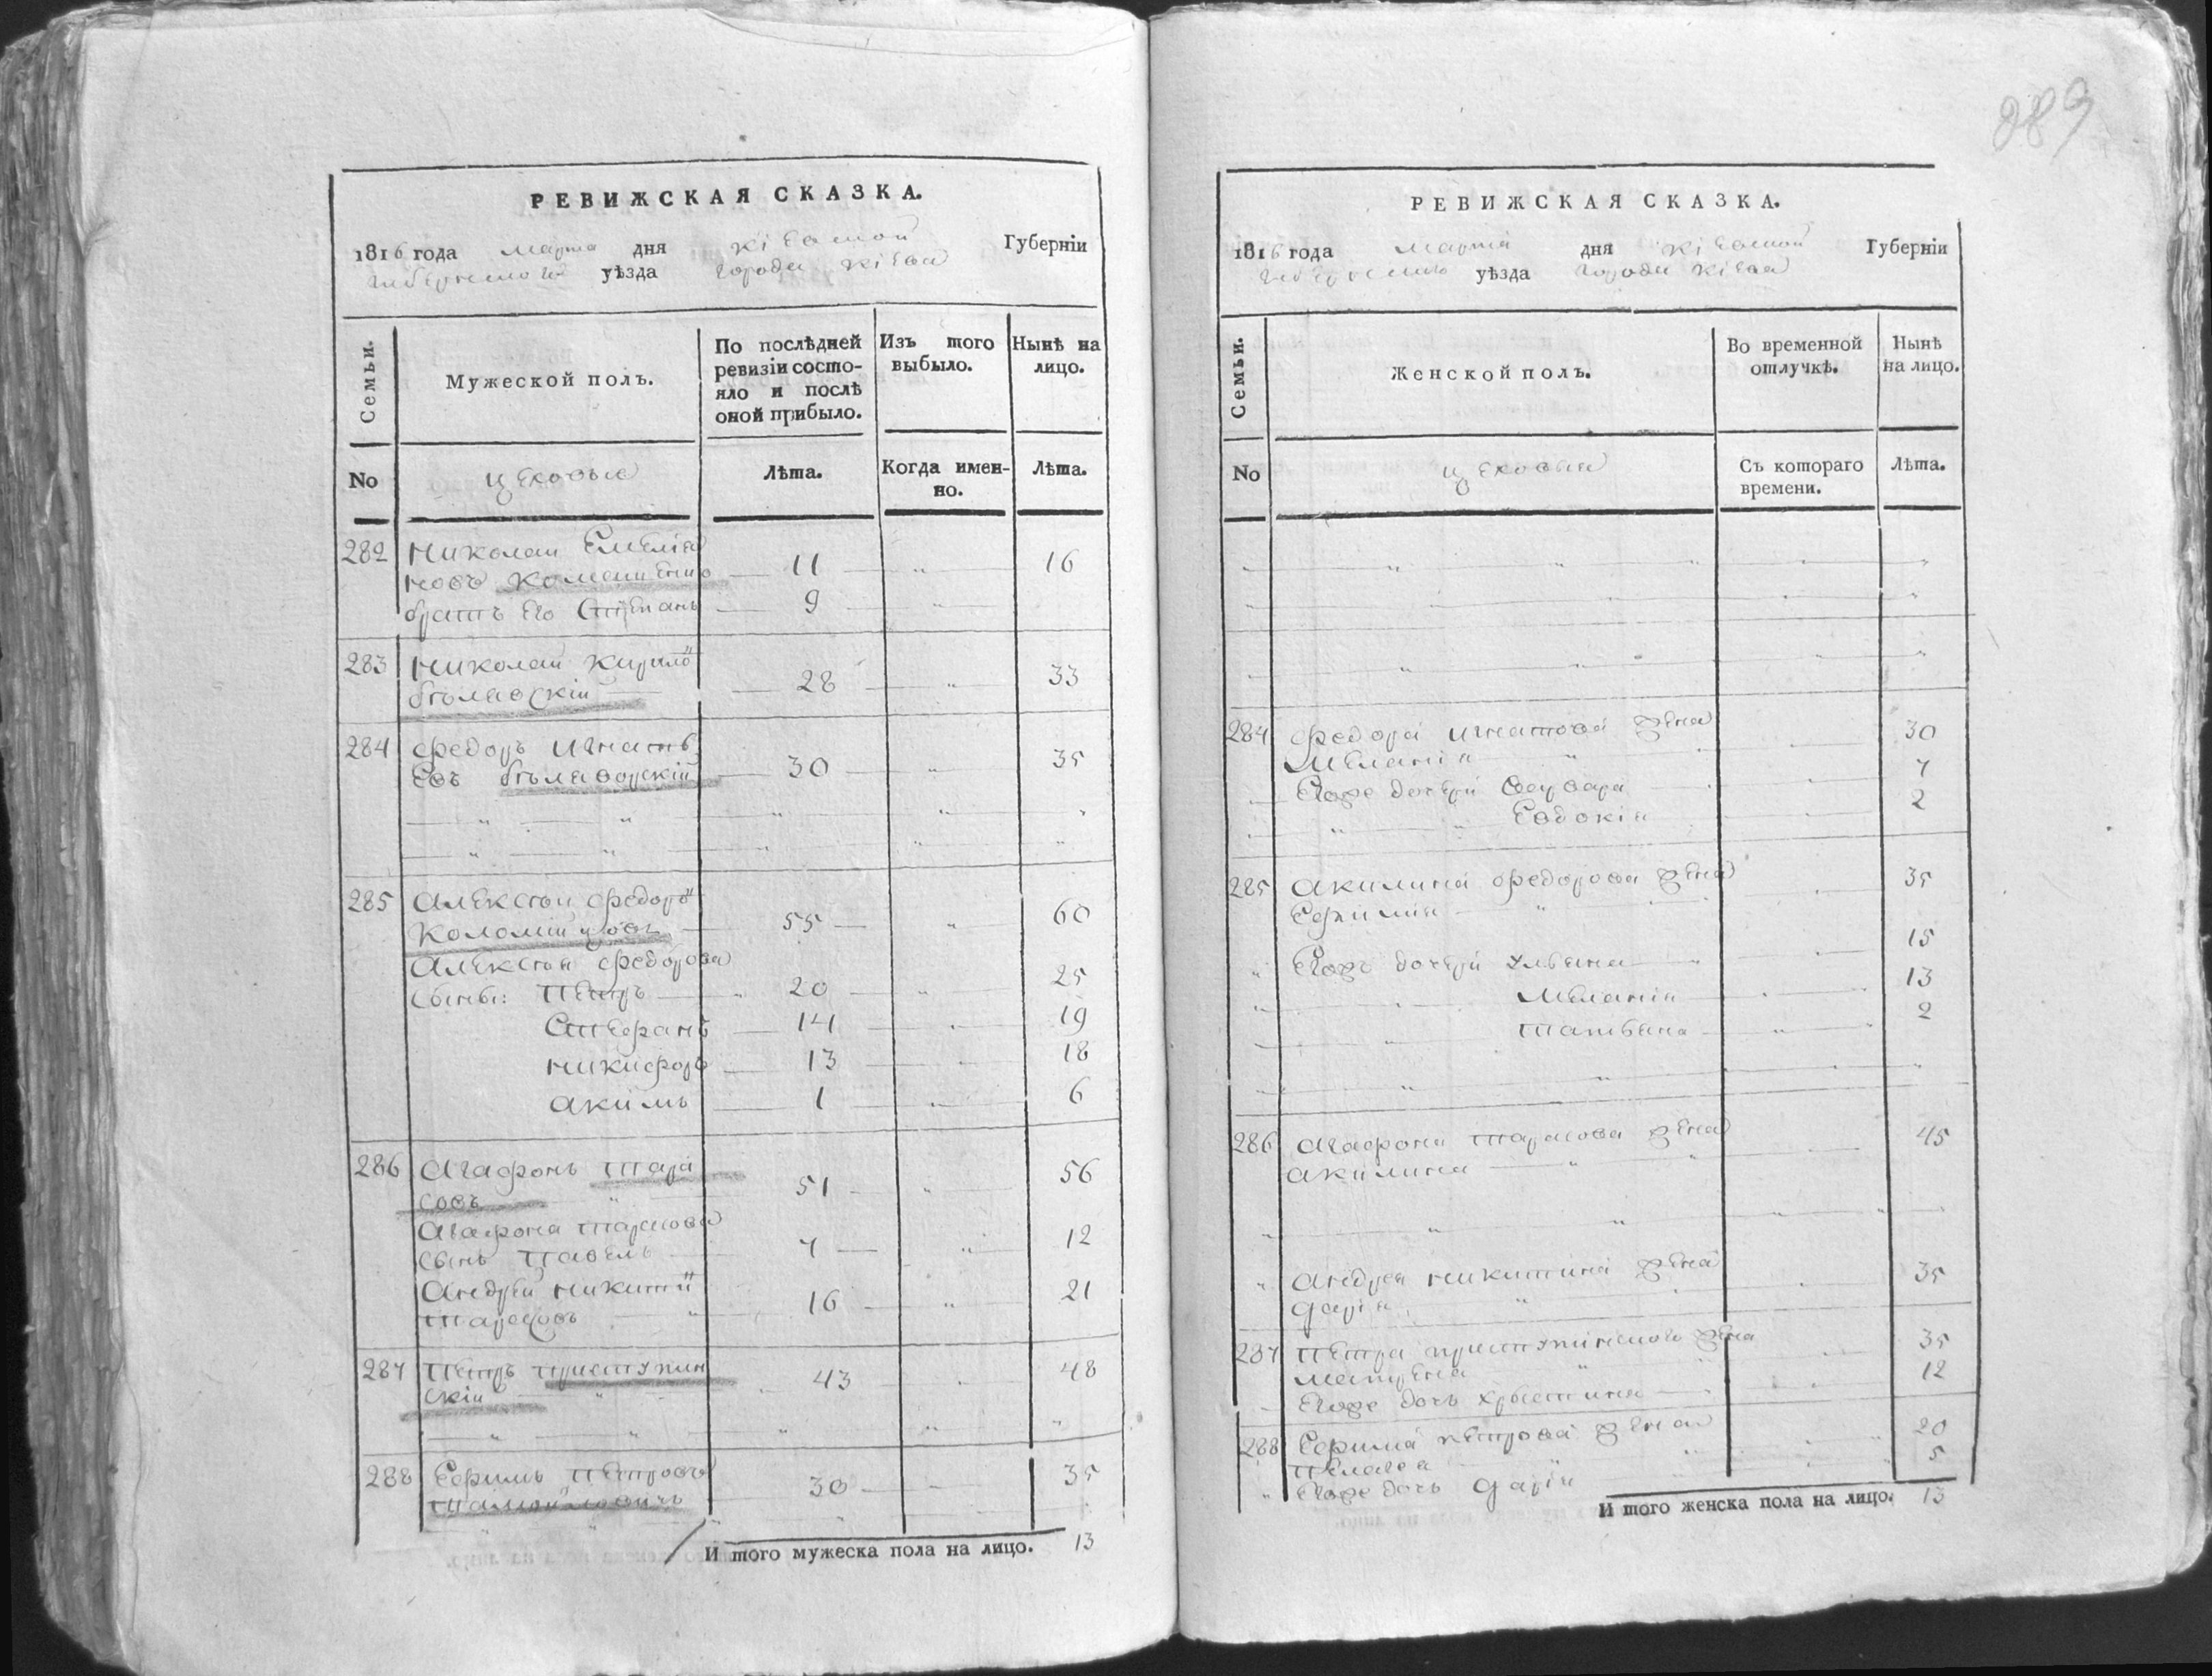 289
РЕВИЖСКАЯ СКАЗКА.
1816 года марта дня Кіевской Губерніи
уѣзда города Кіева
Семьи.
Мужеской полъ.
По послѣдней ревизіи состояло и послѣ оной прибыло.
Изъ того выбыло.
Нынѣ на лицо.
No
цеховые
Лѣта.
Когда именно.
Лѣта.
282 Николай Емелія
новъ 11 " 16
братъ его Степанъ 9 "
283 Николай Кирило"
28 " 33
284 Федоръ Игнать
евъ бѣлаворскій 30 " 35
285 Алексѣй Федоро"
Коломійцовъ 55 " 60
Алексѣя Федорова
сыны: Петръ 20 " 25
Стефанъ 14 " 19
Никифоръ 13 " 18
Акимъ 1 " 6
286 Агафонъ Тара
совъ 51 " 56
Агафона Тарасова
сынъ Павелъ 7 " 12
Андрей Никити"
Тарасовъ 16 " 21
287 Петръ Приступин
скій 43 " 48
288 Ефимъ Петровъ
30 " 35
И того мужеска пола на лицо. 13
РЕВИЖСКАЯ СКАЗКА.
1816 года марта дня Кіевской Губерніи
уѣзда города Кіева
Семьи.
Женской полъ.
Во временной отлучкѣ.
Нынѣ на лицо.
No
цеховыя
Съ котораго времени.
Лѣта.
284 Федора Игнатова жена
Меланія 30
Егоже дочери Феврара 7
Евдокія 2
285 Акилина Федорова жена
Ефимія 35
Егожъ дочери Ульяна 15
Меланія 13
Татьяна 2
286 Агафона Тарасова жена
Акилина 45
Андрея Никитина жена
Дарія 35
287 Петра Приступинского жена
Матрена 35
Егоже дочь Хрыстина 12
288 Ефима Петрова жена
Пелагея 20
Егоже дочь Дарія 5
И того женска пола на лицо. 13